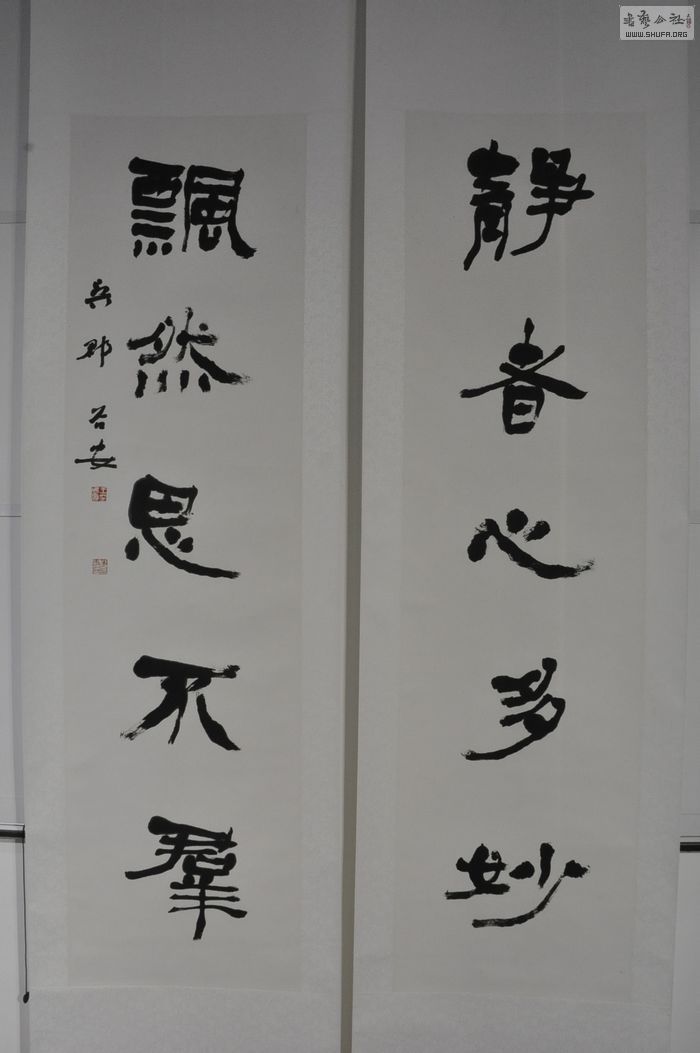 靜者心多妙
飄然思不羣
吴郡谷安
書藝公社
WWW.SHUFA.ORG